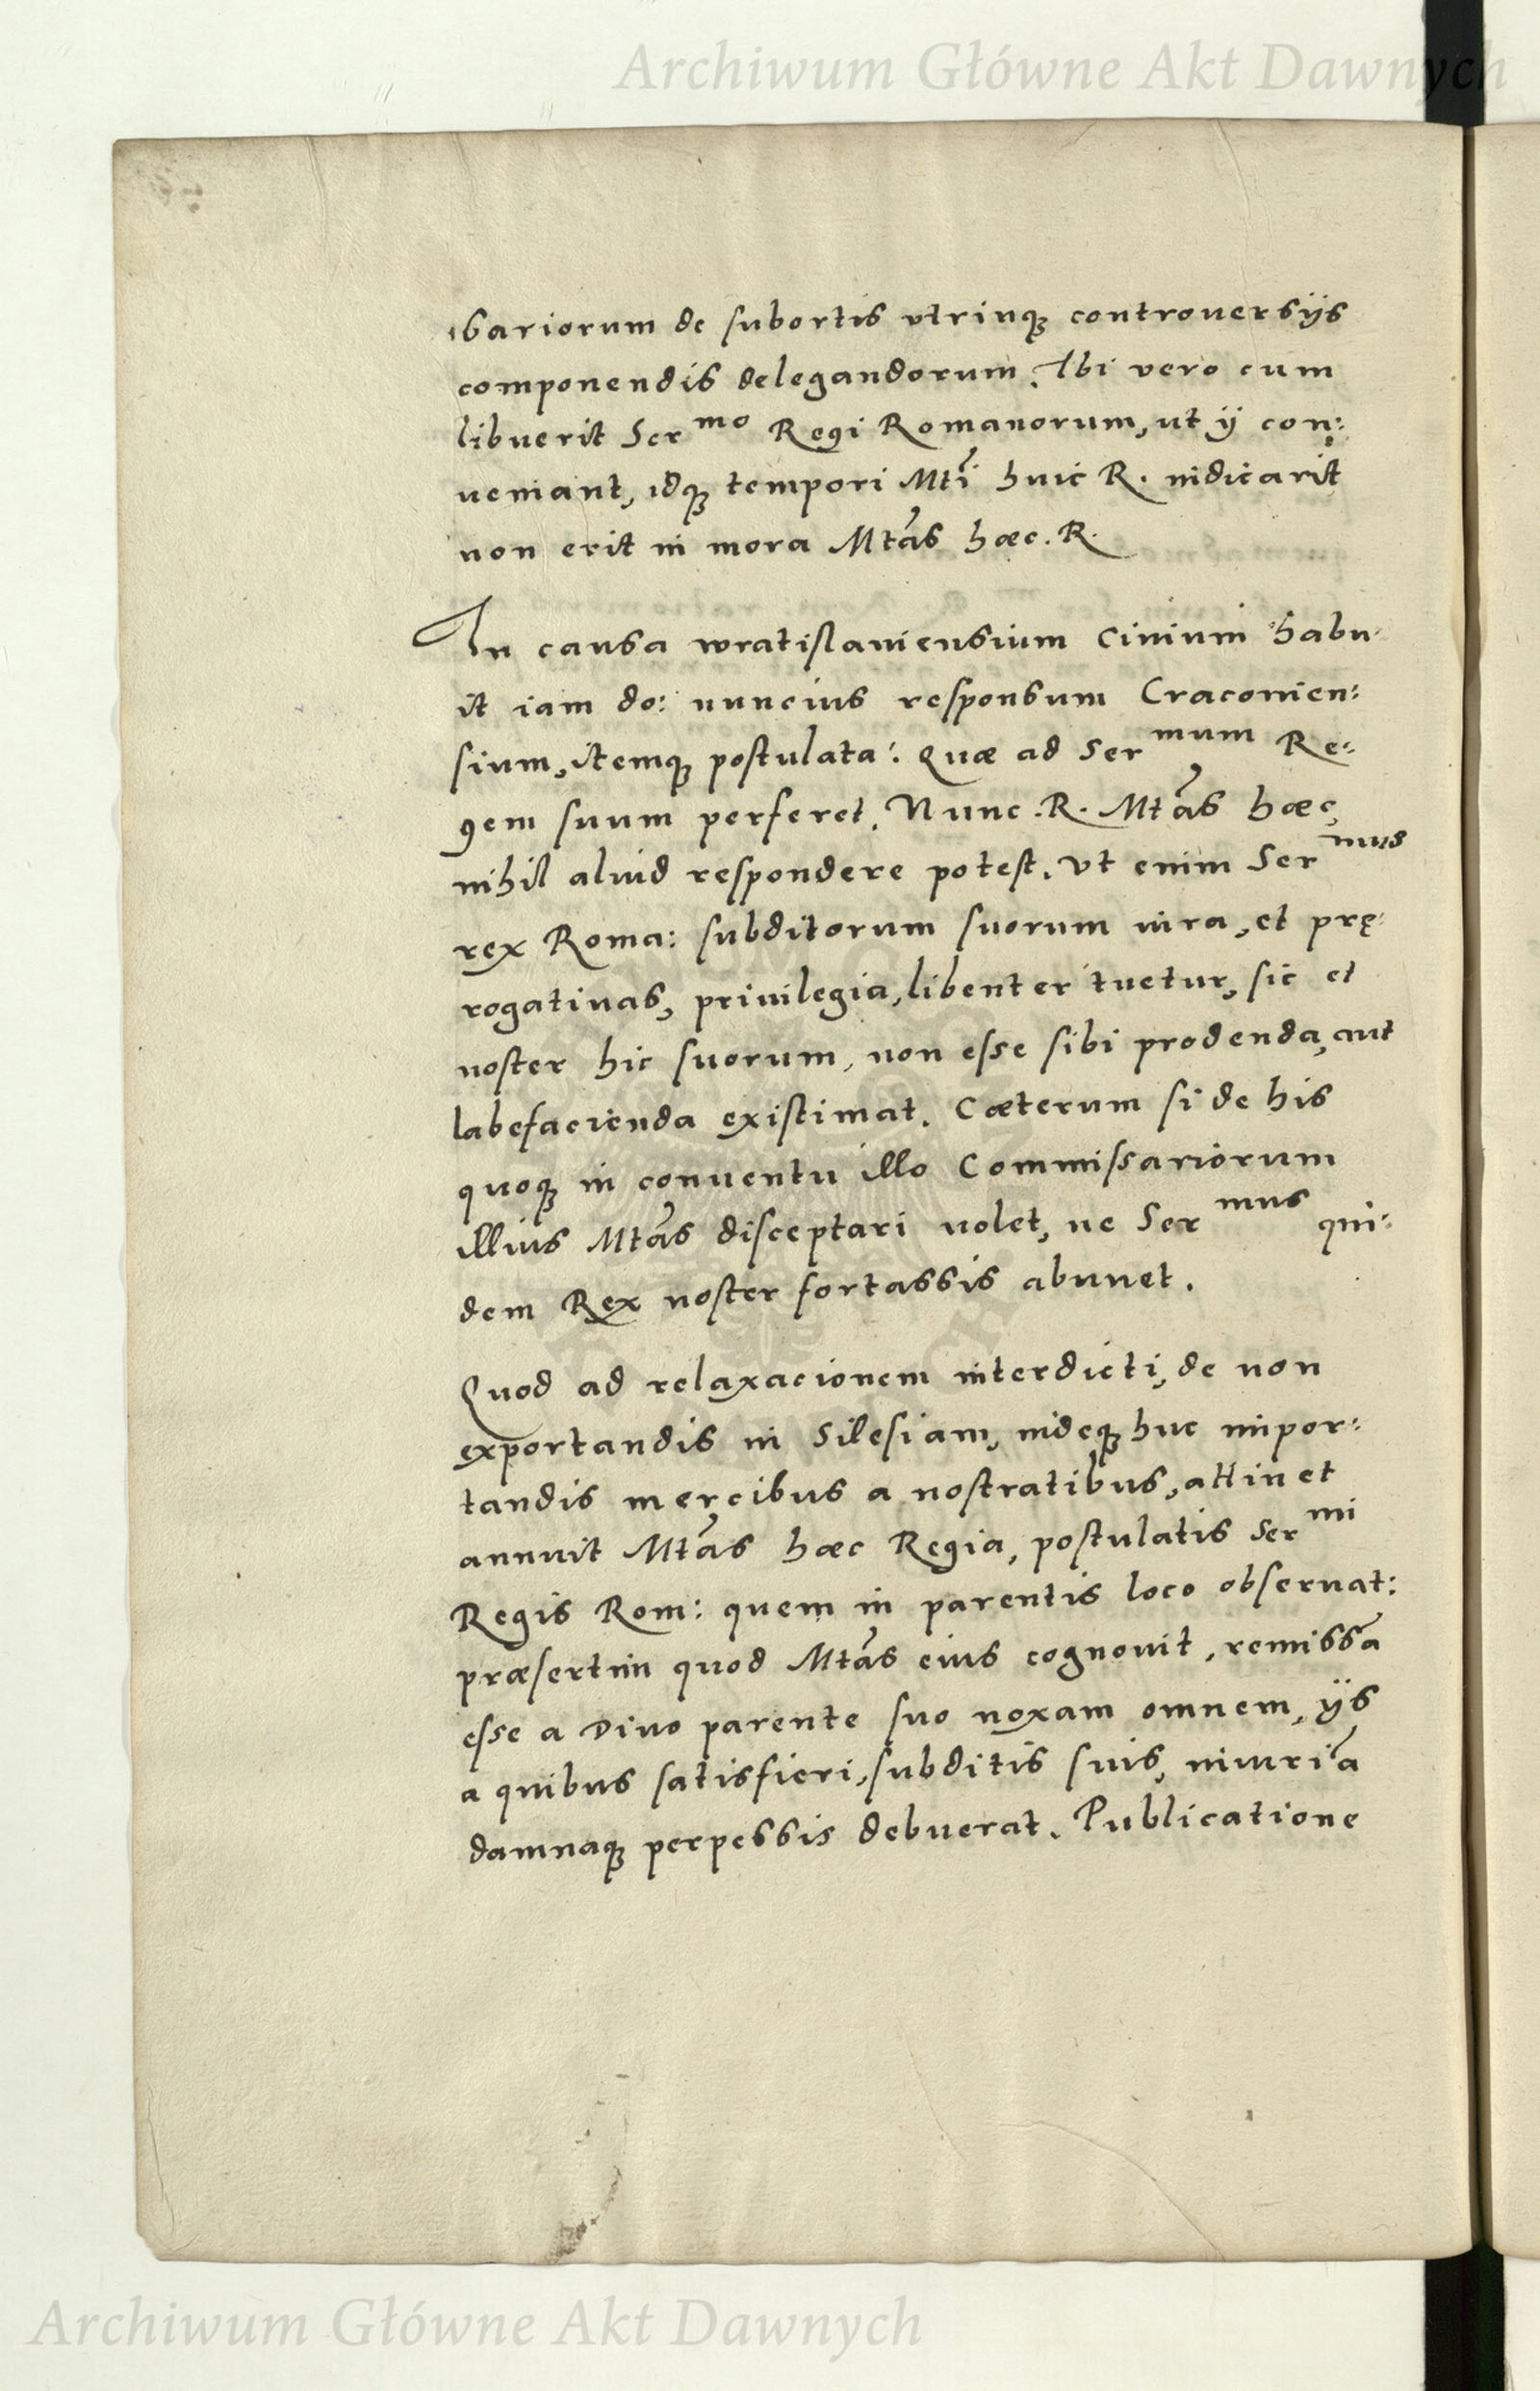 Archiwum Główne Akt Dawnych
sariorum de subortis vtrinq; controuersijs
componendis delegandorum. Ibi vero cum
libuerit Ser^mo Regi Romanorum, ut ij con:
ueniant, idq; tempori Mti huic R. indicarit
non erit in mora Mtas hæc. R.
In causa wratislauiensium Ciuium habu-
it iam do: nuncius responsum Cracouien:
sium, itemq; postulata: Quæ ad Ser^mum Re-
gem suum perferet. Nunc .R. Mtas hæc,
nihil aliud respondere potest. Vt enim Ser^mus
rex Roma: subditorum suorum iura, et prę-
rogatiuas, priuilegia, libenter tuetur, sic et
noster hic suorum, non esse sibi prodenda, aut
labefacienda existimat. Cæterum si de his
quoq; in conuentu illo Commissariorum
illius Mtas disceptari uolet, ne Ser^mus qui-
dem Rex noster fortassis abnuet.
Quod ad relaxacionem interdicti, de non
exportandis in Silesiam, indeq; huc impor:
tandis mercibus a nostratibus, attinet
annuit Mtas hæc Regia, postulatis Ser^mi
Regis Rom: quem in parentis loco obseruat:
præsertim quod Mtas eius cognouit, remissā
esse a Diuo parente suo noxam omnem, ijs
a quibus satisfieri, subditis suis, iniuriā
damnaq; perpessis debuerat. Publicatione
Archiwum Główne Akt Dawnych